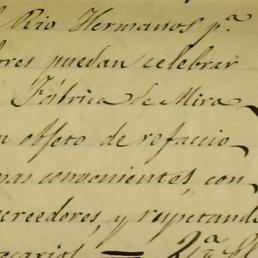 Rio Hermanos p.ª
ores puedan celebrar
Fábrica de Mira
n objeto de refaccio
mas convenientes, con
creedores, y respetand
ecarios = 2.ª El